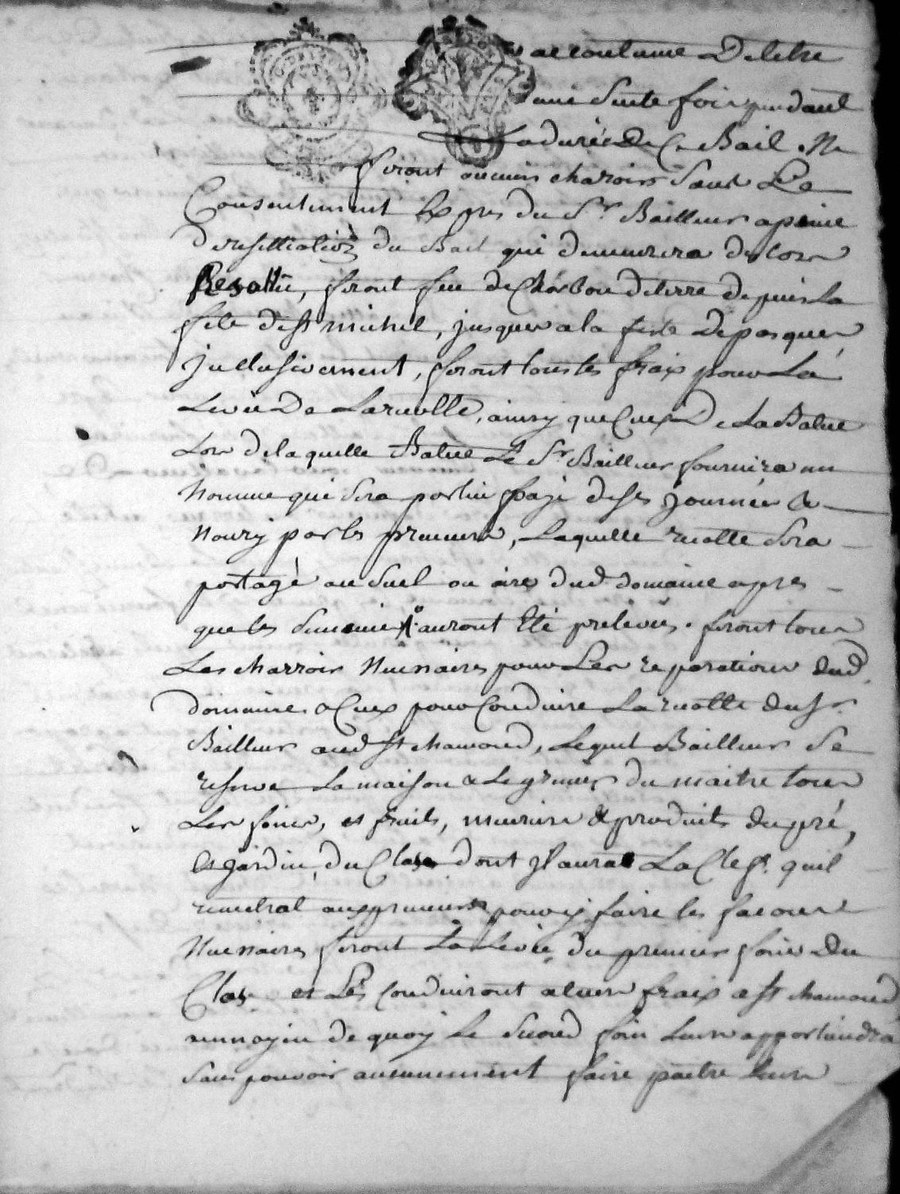 accoutume De letre
une Seule fois pendant
La durée De Ce Bail. Ne
feront aucuns charois Sans Le
Consentement Expres du Sr. Bailleur apeine
de resilliation du Bail qui demeurera des lors
Resollu, feront feu de Charbon de terre depuis La
fete de St michel, jusques a la fete De paques
Jnclusivement, feront tous les fraix pour La
Levée De La recolte, ainsy que Ceux De La Batue
Lors de laquelle Batue Le Sr. Bailleur fournira un
homme qui Sera par lui payé de Ses Journées &
Noury par les preneurs, Laquelle recolte Sera
partagé au Suel ou aire dud. domaine apres
que les Semences auront Eté prelevés. feront tous
Les charrois Necessaires pour Les reparations dud.
domaine & Ceux pour Conduire La recolte du Sr.
Bailleur aud. St chamond, Lequel Bailleur Se
reserve La maison & Le grenier du maitre tous
Les foins, et fruits, meuriers & produits du pré,
et jardin du Clos dont Jl aura La Clef. quil
remettra aux preneurs pour y faire les facons
Necessaires feront La Levée du premier foin Du
Clos et Les Conduiront a leurs fraix a St chamond
aumoyen de quoy Le Second foin Leurs appartiendra
Sans pouvoir aucunement faire paitre Leurs